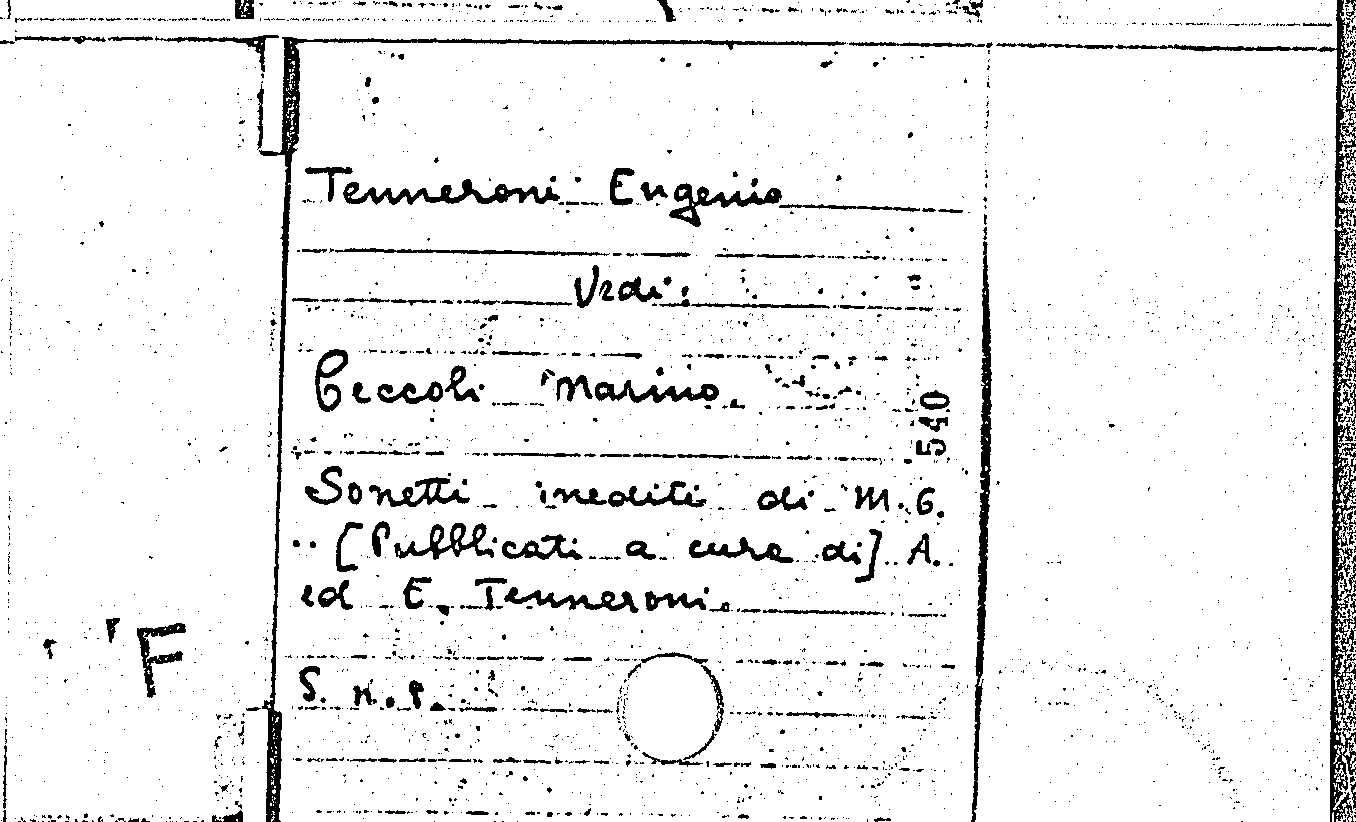 Tenneroni Eugenio
Vedi:
Ceccoli Marino.
540
Sonetti inediti di M. C.
.. [Pubblicati a cura di] A.
ed E. Tenneroni.
S. n. t.
F